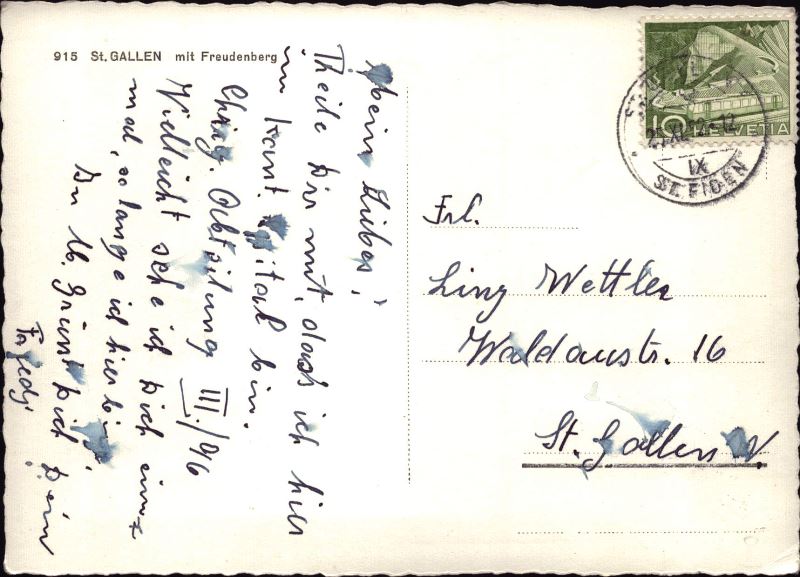 915 St. GALLEN mit Freudenberg
Mein Liebes!
Theile Dir mit, dass ich hier
im Kant. Spital bin.
Chirg. Abteilung III./96
Vielleicht sehe ich Dich einz
mal, so lange ich hier bin.
Grüsst Dich Dein
Fredy
10 HELVETIA
IX
ST. FIDEN
Frl.
Liny Wettler
Waldaustr. 16
St. Gallen W